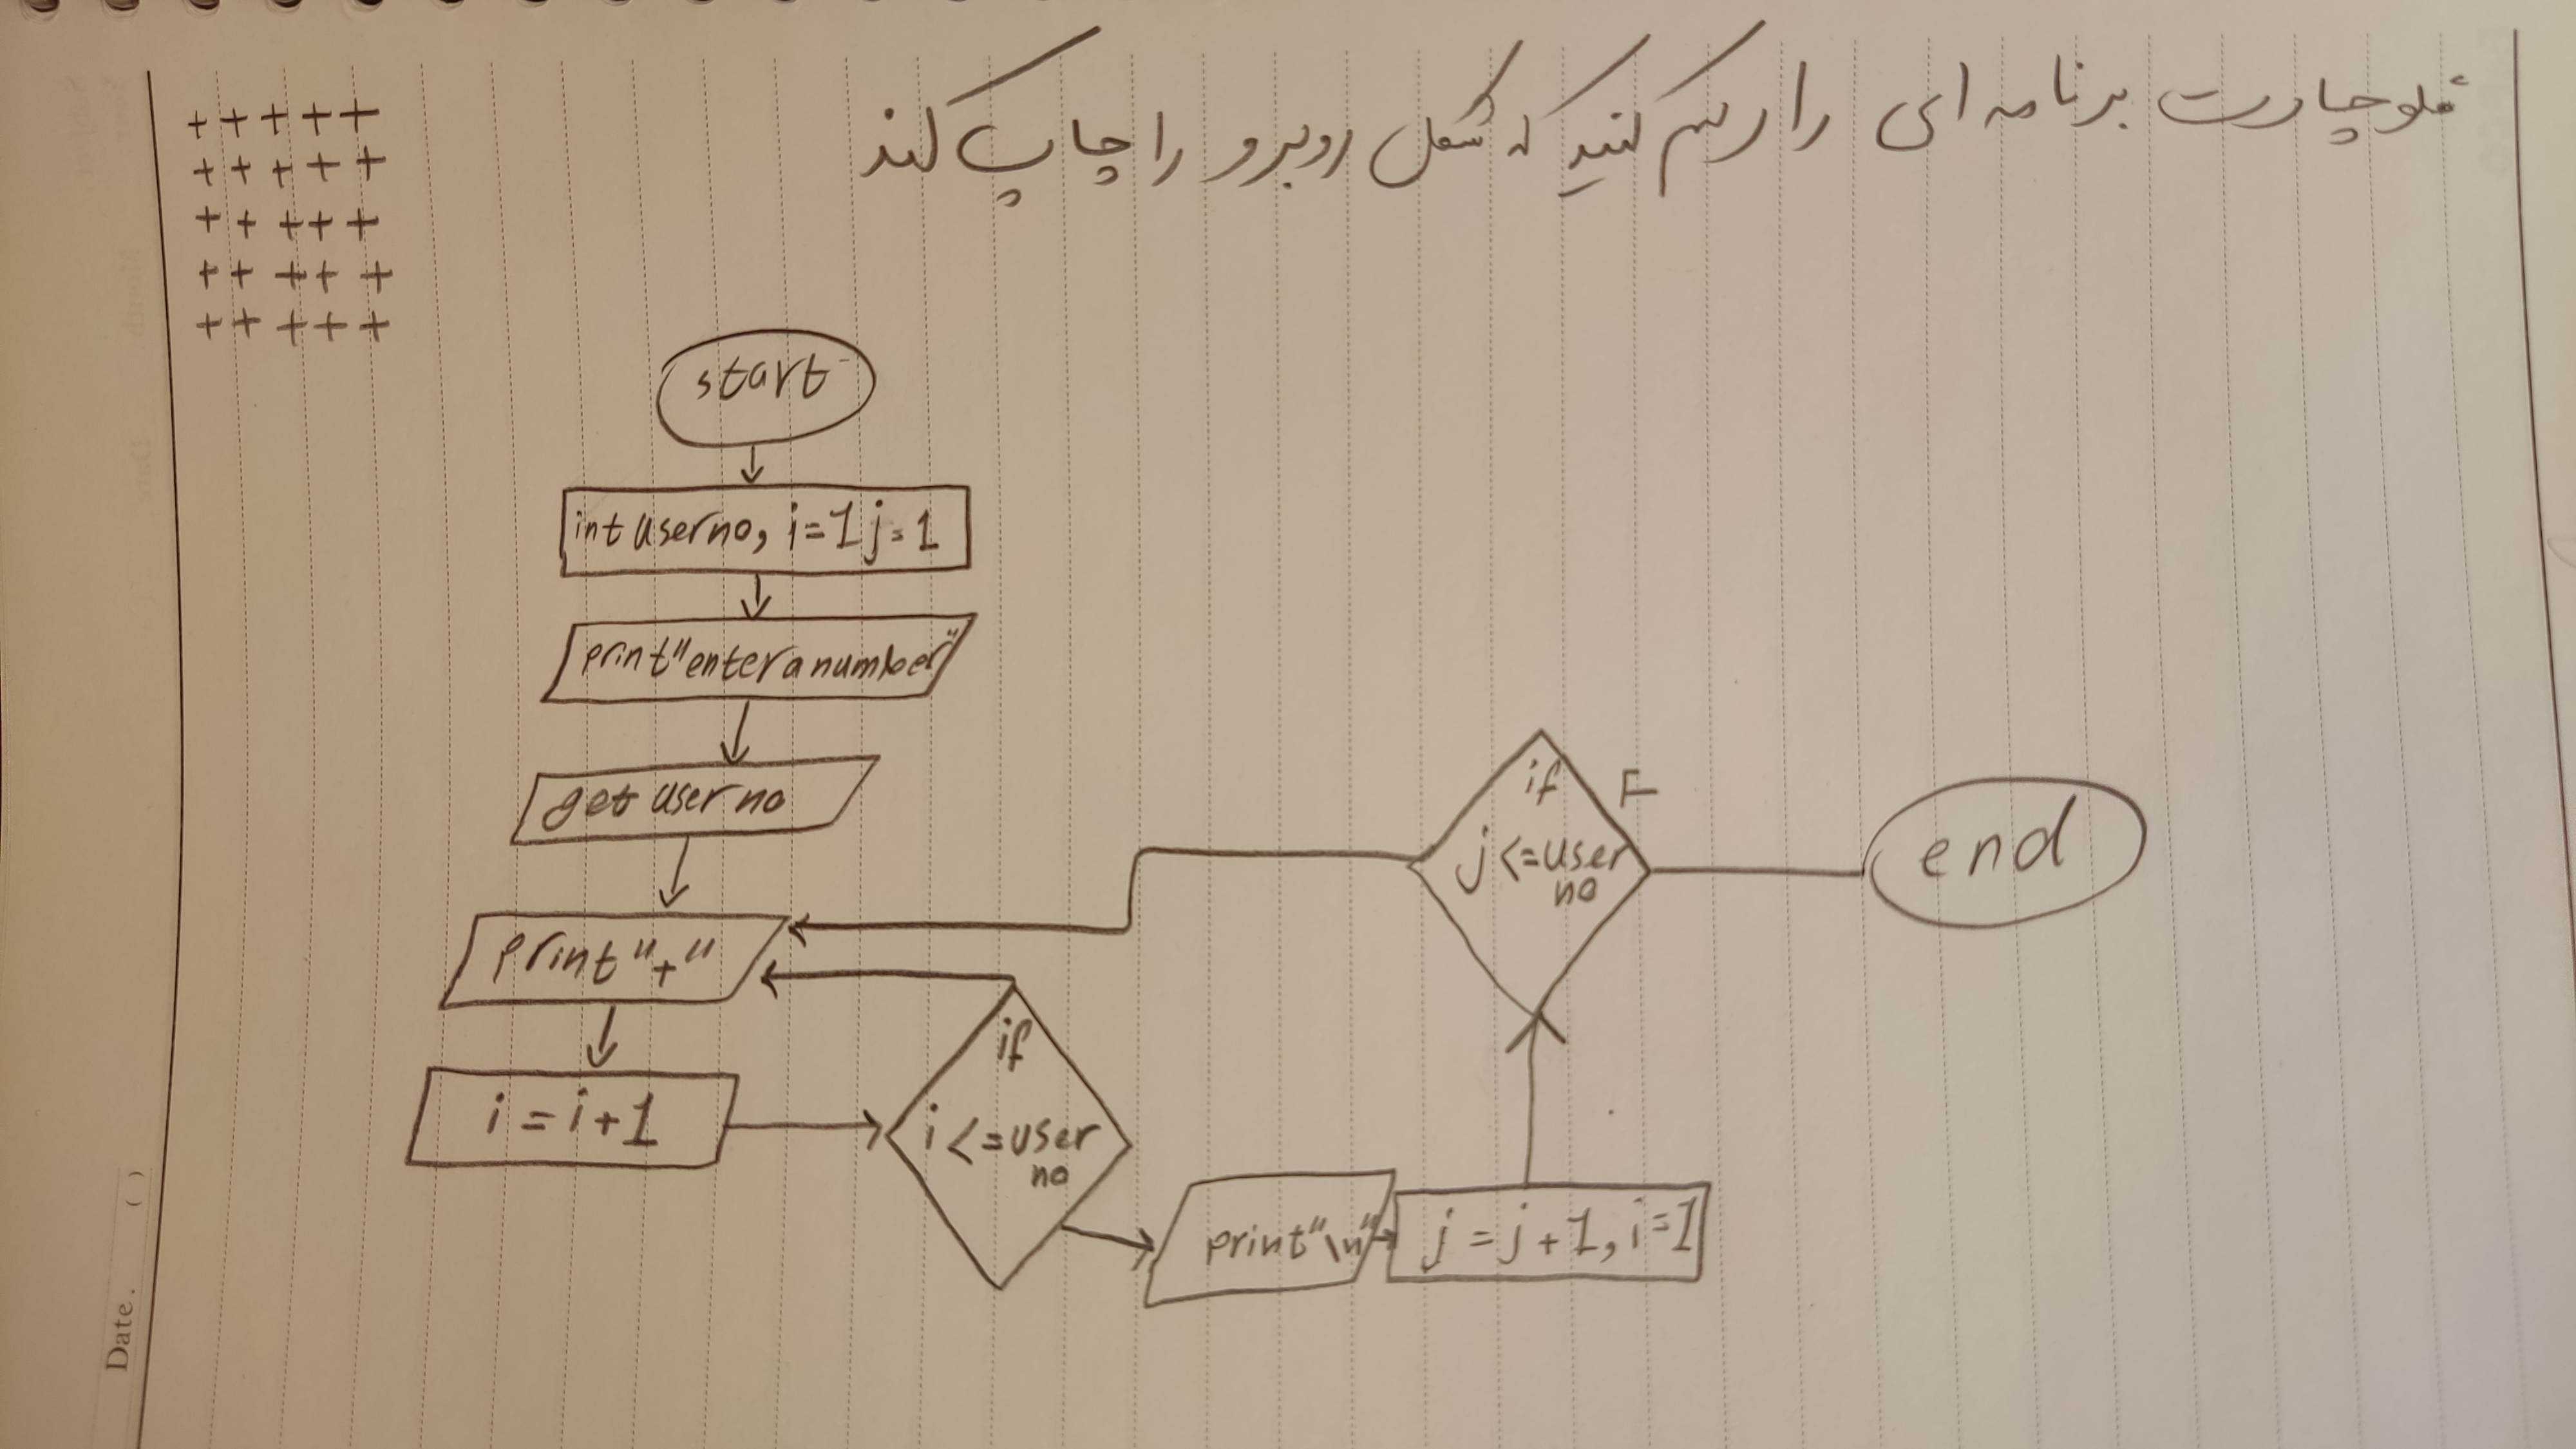 فلوچارت برنامه ای را رسم کنید که شکل روبرو را چاپ کند
+ + + + +
+ + + + +
+ + + + +
+ + + + +
+ + + + +
start
int userno, i=1 j=1
print"enter a number"
get userno
print"+"
i=i+1
if
i<=user
no
print"\n"
j=j+1,i=1
if
j<=user
no
F
end
Date. ( )